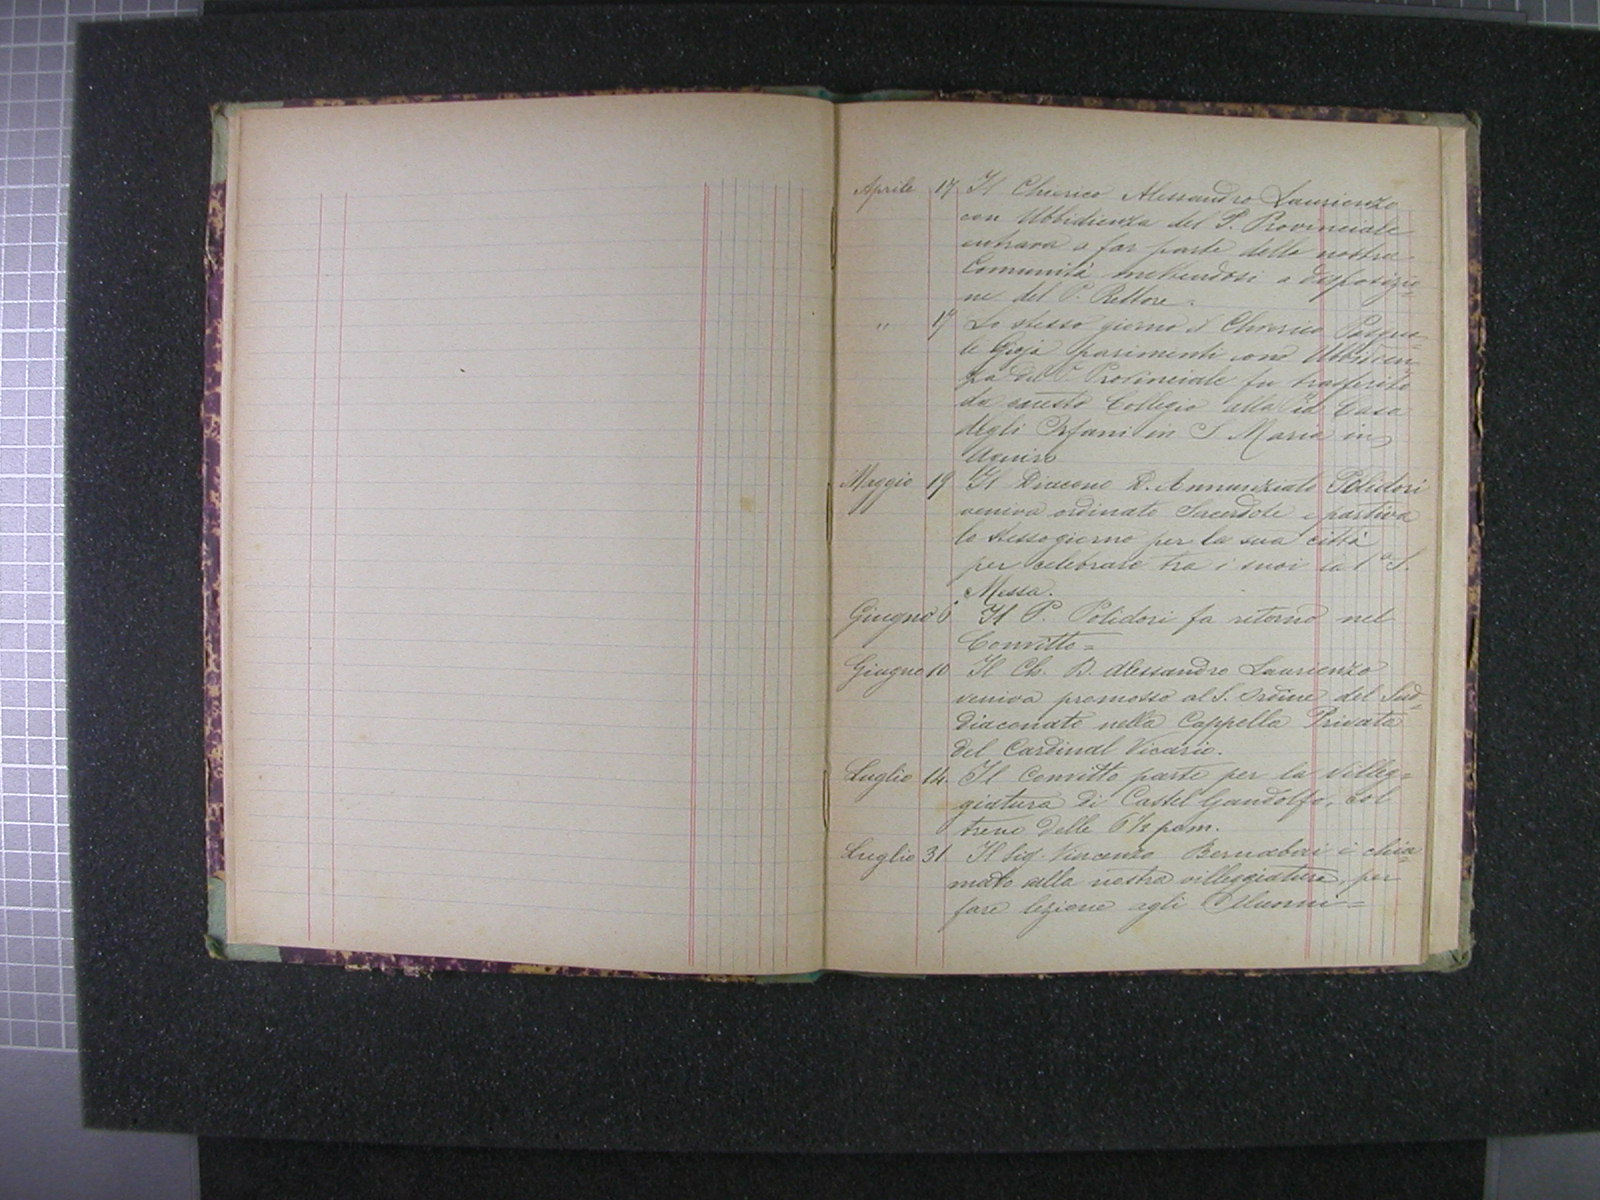 Aprile 17. Il Chierico Alessandro Laurienzo
con Ubbidienza del P. Provinciale
entrava a far parte della nostra
Comunità mettendosi a disposizio=
ne del P. Rettore =
" 17 Lo stesso giorno il Chierico Pasqua=
le Gioja parimenti con Ubbidien=
za del P. Provinciale fu trasferito
da questo Collegio alla Pia Casa
degli Orfani in S. Maria in
Aquiro
Maggio 19 Il Diacono D. Annunziato Polidori
veniva ordinato Sacerdote e partiva
lo stesso giorno per la sua città
per celebrare tra i suoi la 1ª S.
Messa.
Giugno 6 Il P. Polidori fa ritorno nel
Convitto =
Giugno 10 Il Ch. D. Alessandro Laurienzo
veniva promosso al S. Ordine del Sud=
diaconato nella Cappella Privata
del Cardinal Vicario.
Luglio 14. Il Convitto parte per la villeg=
giatura di Castel Gandolfo, col
treno delle 6 1/2 pom.
Luglio 31 Il Sig. Vincenzo è chia=
mato alla nostra villeggiatura, per
fare lezione agli Alunni =